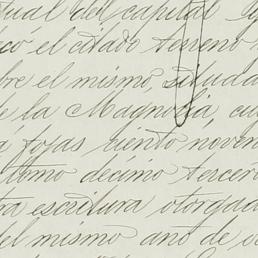 tual del capital
có el citado terreno
bre el mismo, situada
e la Magnolia,
á fojas ciento noven
ltimo décimo tercero
ra escritura otorgad
el mismo año de